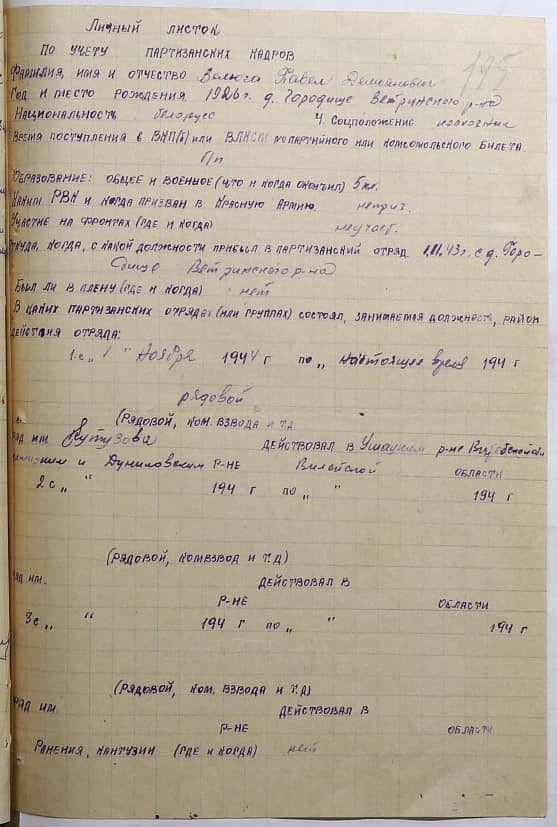 Личный листок
195
по учету партизанских кадров
Фамилия, имя и отчество Велюга Павел Демьянович
Год и место рождения 1926 г. д. Городище Ветринского р-на
Национальность белорус 4. Соцположение колхозник
Время поступления в ВКП(б) или ВЛКСМ № партийного или комсомольского билета
б/п
Образование: общее и военное (что и когда окончил) 5 кл.
Каким РВК и когда призван в Красную Армию. неприз.
Участие на фронтах (где и когда) неучаст.
Откуда, когда, с какой должности прибыл в партизанский отряд 1.11.43 г. с д. Горо-
дище Ветринского р-на
Был ли в плену (где и когда) нет
В каких партизанских отрядах (или группах) состоял, занимаемая должность, район
действия отряда:
1. с „ 1 " Ноября 1944 г по „ настоящее время 194 г
рядовой
(рядовой, ком. взвода и т.д
ряд им. Кутузова действовал в Ушацким р-не Витебской
и Дуниловским р-не Вилейской области
2 с „ " 194 г по „ " 194 г
(рядовой, комвзвод и т.д)
ряд им. действовал в
р-не области
3 с „ " 194 г по „ " 194 г
(рядовой, ком. взвода и т.д)
ряд им. действовал в
р-не области
Ранения, кантузии (где и когда) нет